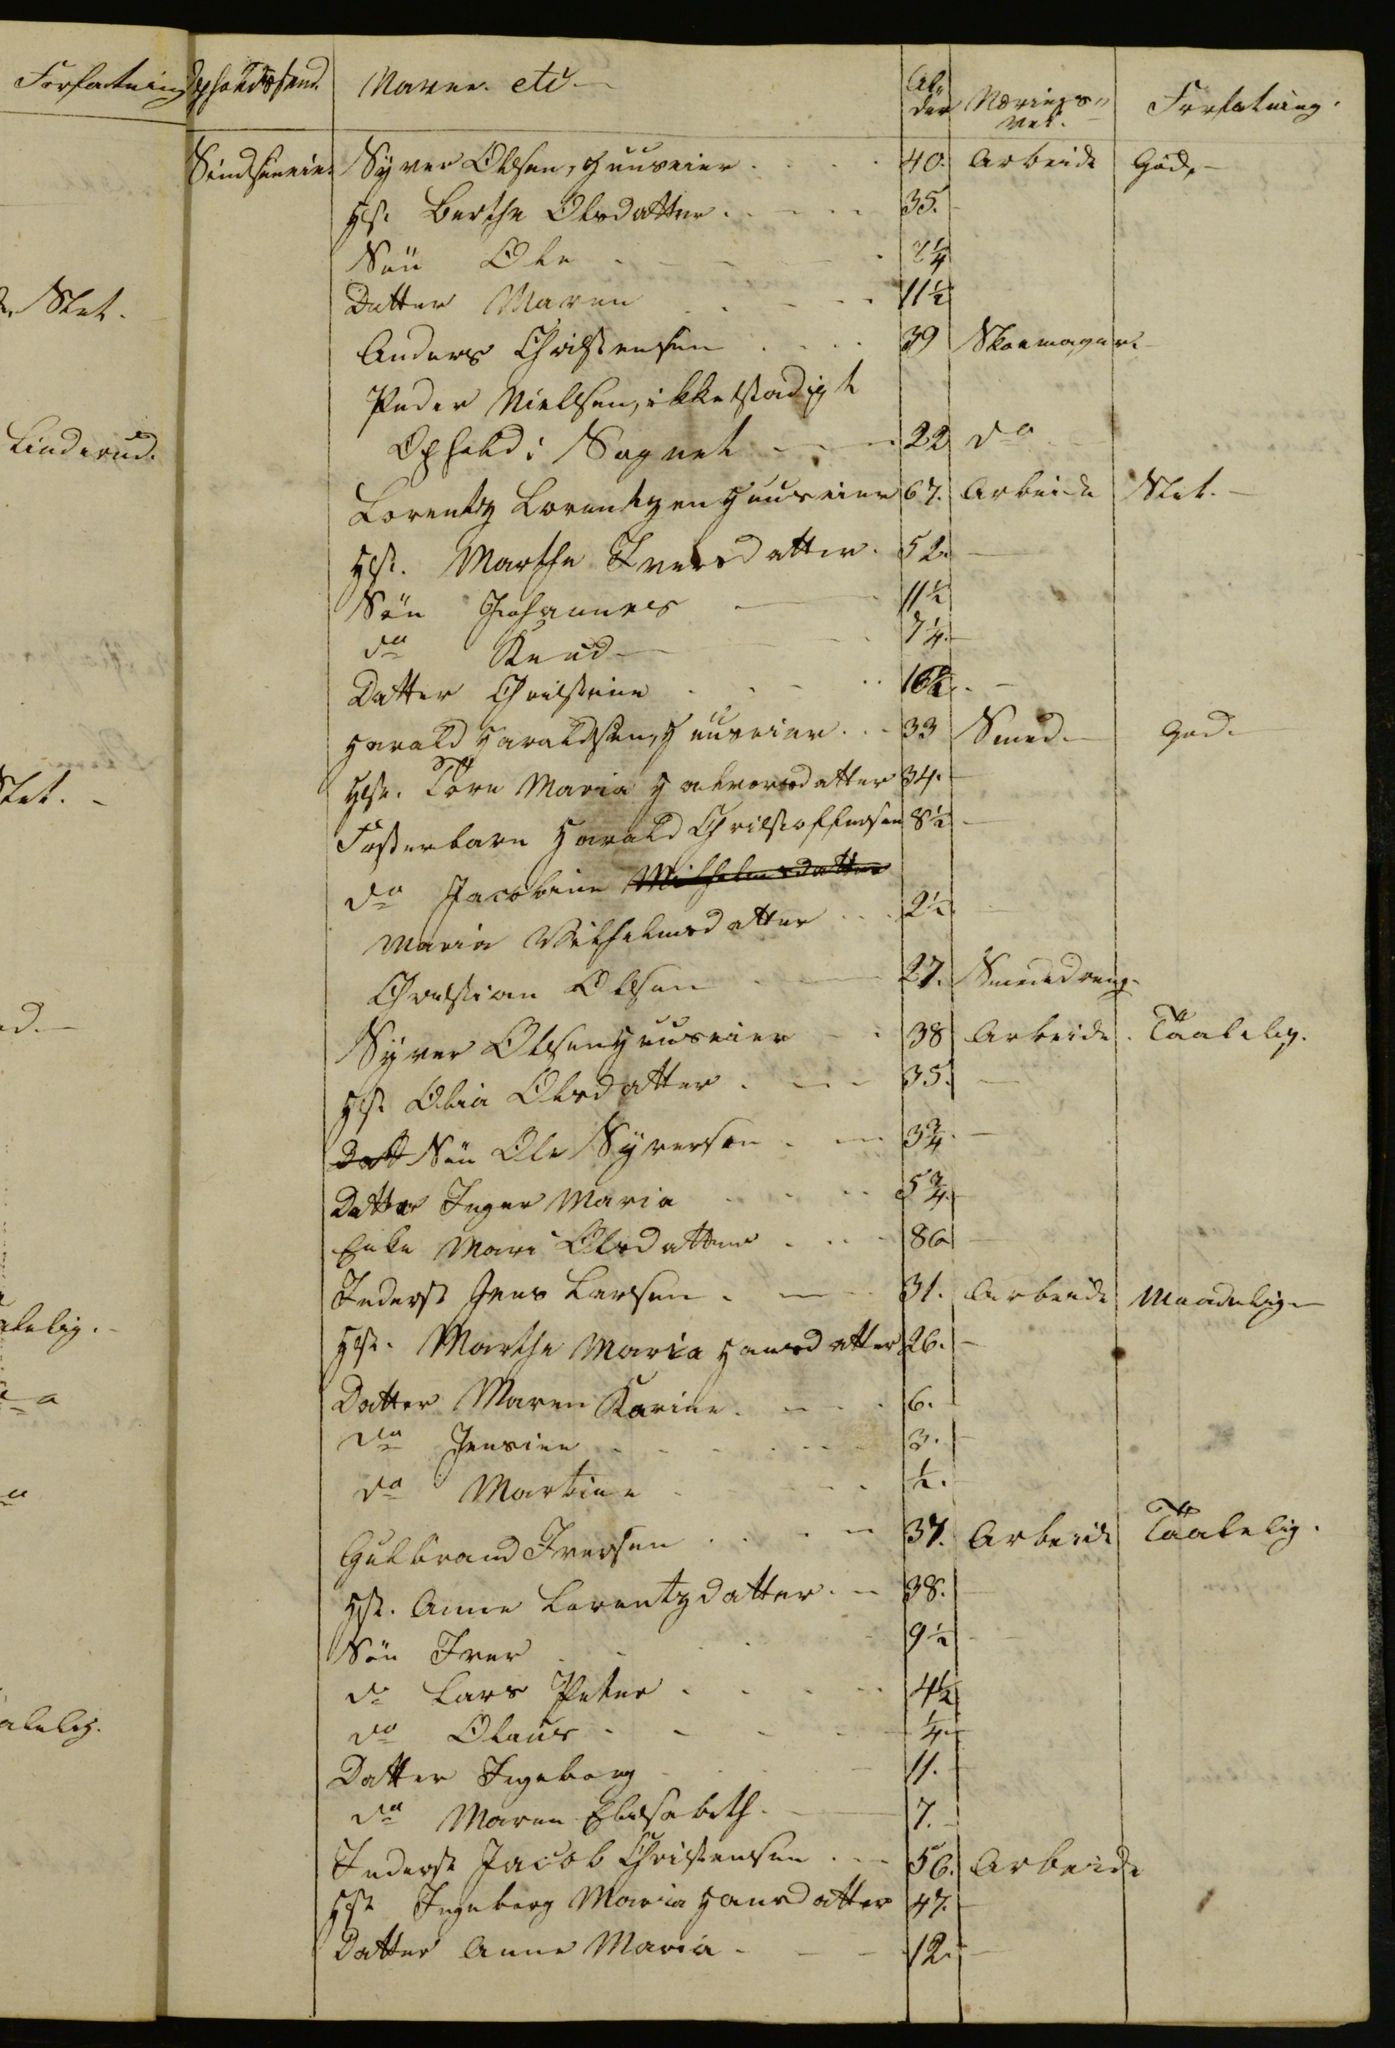 Forfatning
Slet.
Linderud.
Slet. -
Opholdssted. Navne. etc Alder Nærings-vei. Forfatning.
Sindseneie. Syver Olsen, Huuseier 40. Arbeide God. -
Hst. Berthe Olsdatter. 35.
Søn Ole 2 1/4
Datter Maren 11 1/2
Anders Christensen 39 Skoemager.
Peder Nielsen, ikke stadigt
Ophold i Sognet 22 do
Lorentz Lorentzen Huuseier 67. Arbeide Slet. -
Hst. Marthe Iversdatter. 52.
Søn Johannes 11 1/2
do Knud 7 1/4.
Datter Christine 16 1/2.
Harald Haraldsen, Huuseier. 33 Smed. God.
Hst. Tore Maria Halvorsdatter 34.
Fosterbarn Harald Christoffersen 8 1/2
do Jacobine Wilhelmsdatter
Maria Vilhelmsdatter 2 1/2
Christian Olsen 27. Smededreng.
Syver Olsen Huuseier 38 Arbeide. Taalelig.
Hst. Olia Olsdatter. 35.
Datt Søn Ole Syversen. 3 3/4.
Datter Inger Maria 5 3/4.
Enke Mari Olsdatter 86
Inderst Jens Larsen. 31. Arbeide Maadelig
Hst. Marthe Maria Hansdatter 26.
Datter Maren Karine. 6.
do Jensine 3.
do Martine 1/2.
Gulbrand Iversen 37. Arbeide Taalelig.
Hst. Anne Lorentzdatter. 38.
Søn Iver 9 1/2
do Lars Peter 4 1/2
do Olaus 1/4.
Datter Ingeborg 11.
do Maren Elisabeth. 7.
Inderst Jacob Christensen 56. Arbeide
Hst Ingeborg Maria Hansdatter 47.
Datter Anne Maria 12.